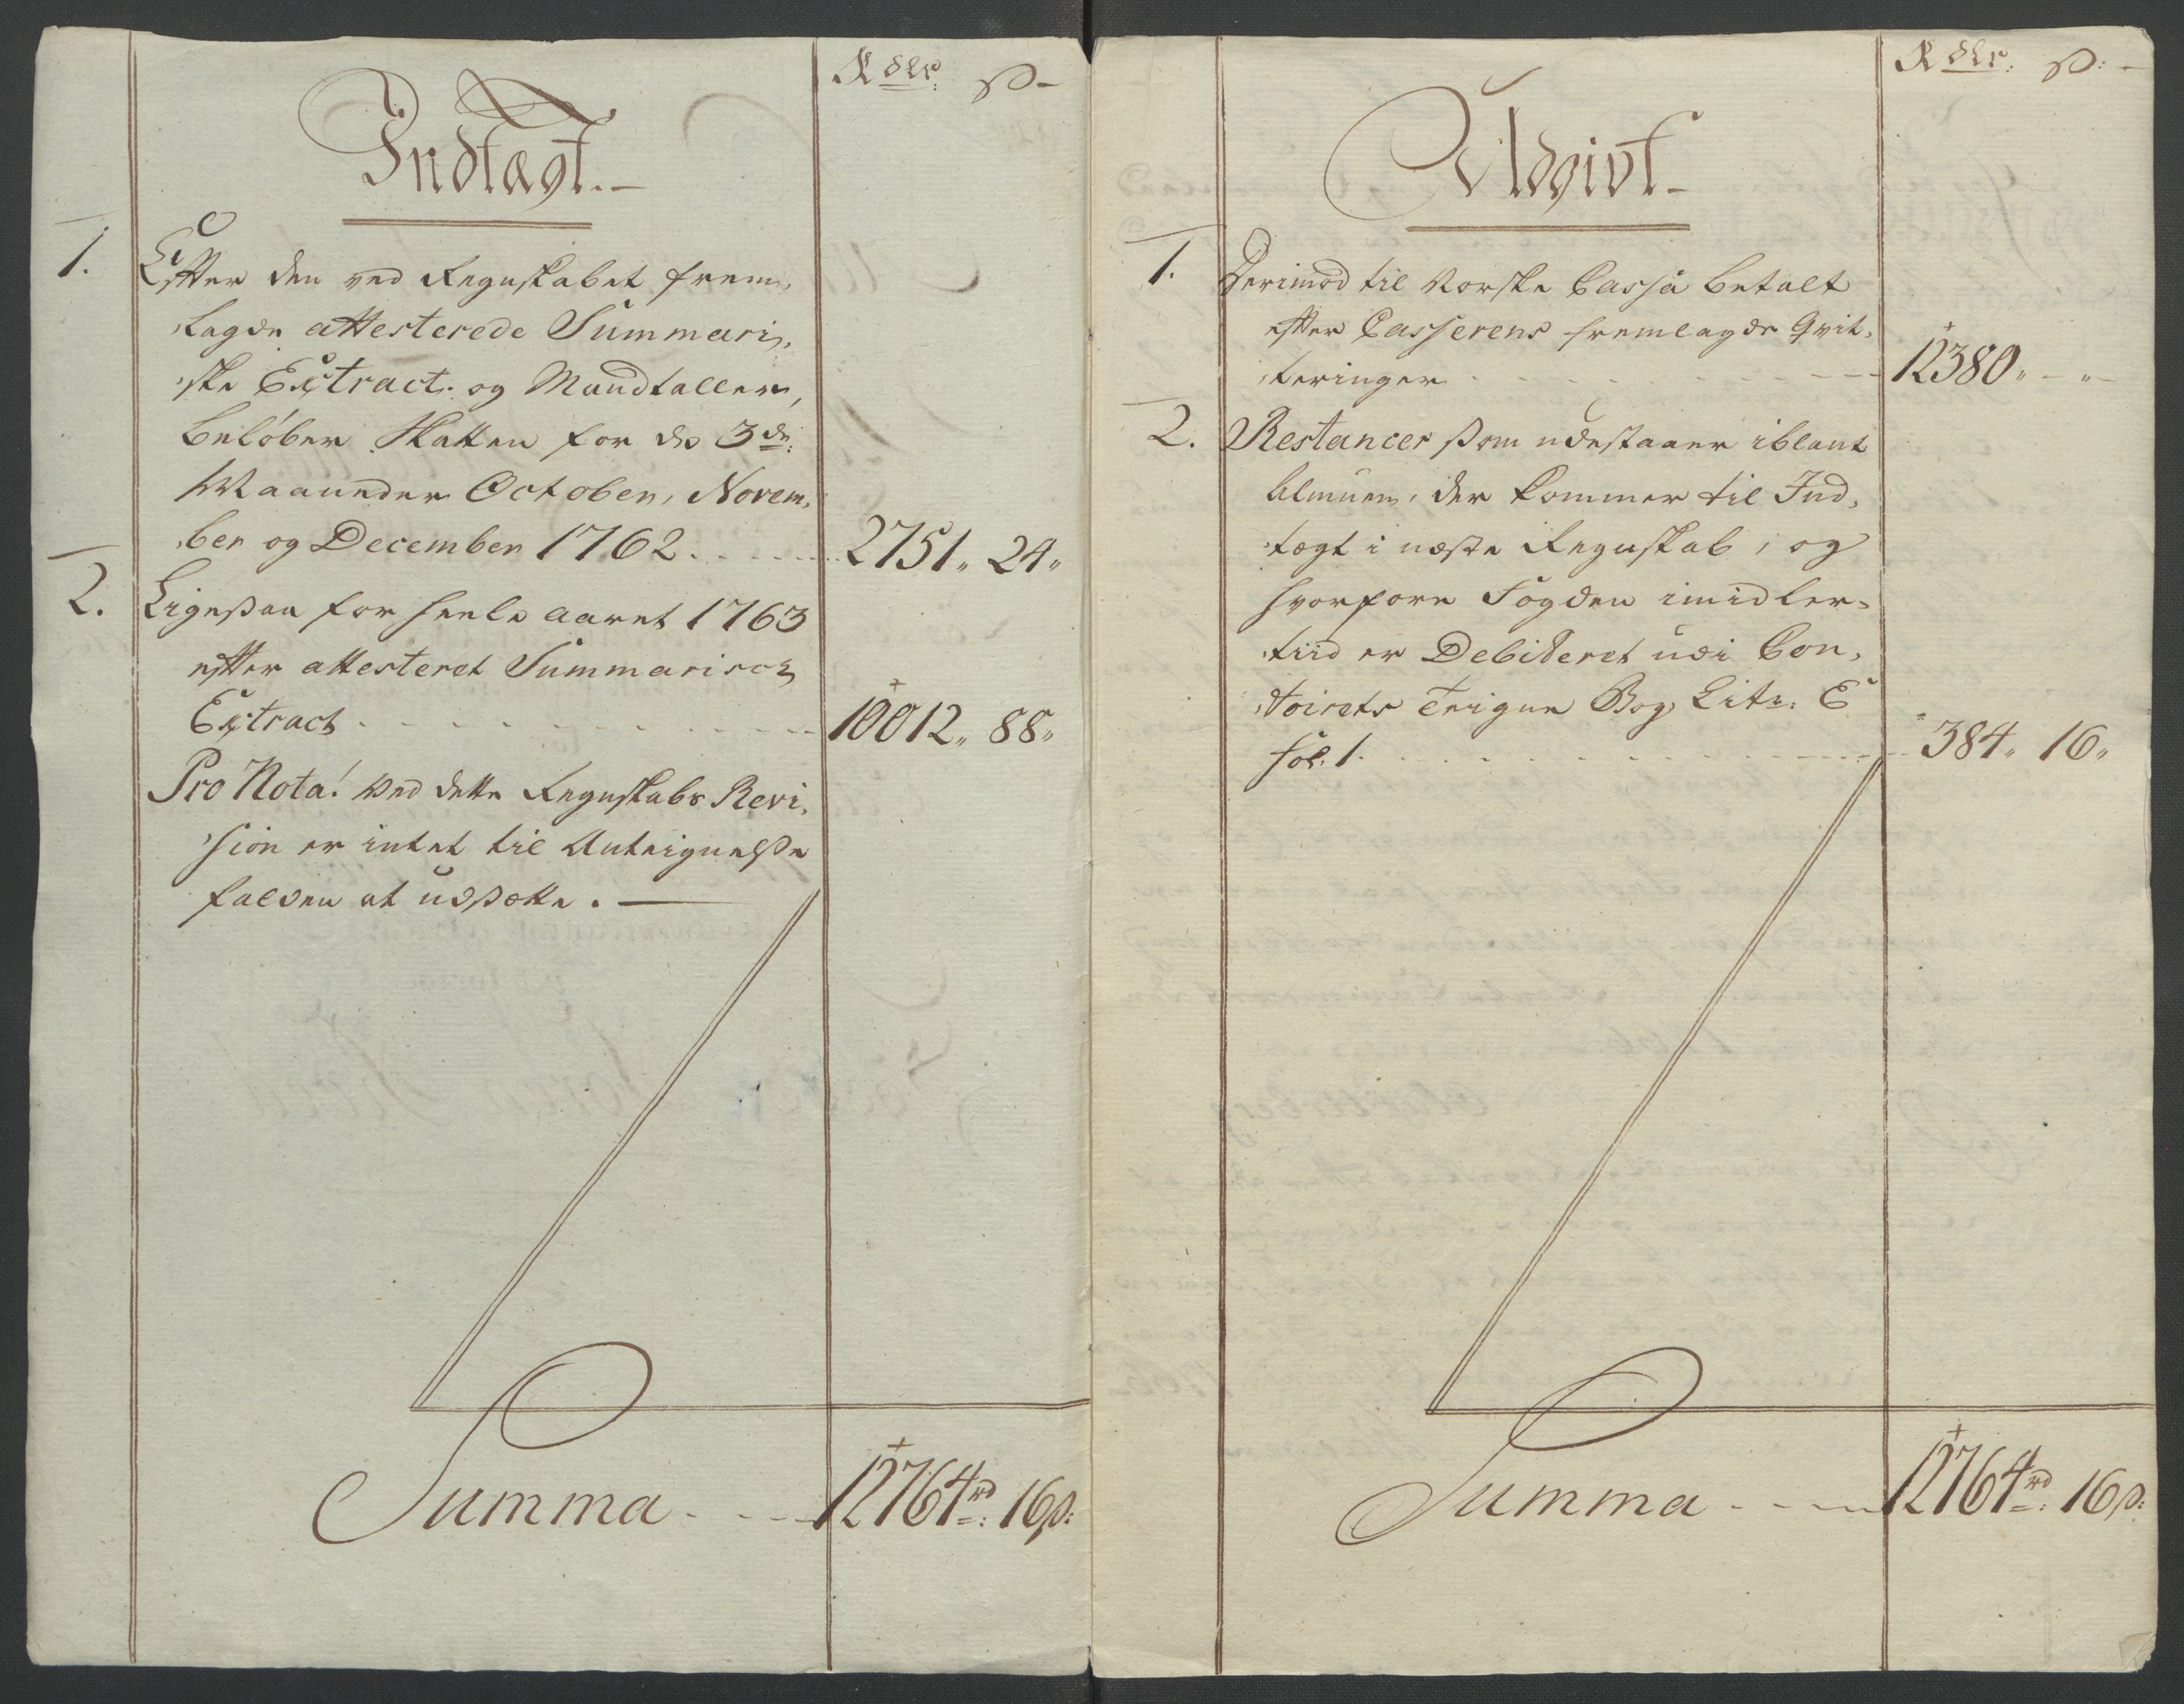 Rdlr: ß-
Indtægt.-
1. Efter den ved Regnskabet frem,
,lagde attesterede Summari,
,ske Extract: og Mandtaller,
beløber Skatten for de 3de:
Maaneder October, Novem,
,ber og December 1762 . . . . . . 2751,, 24,,
2. Ligesaa for heele aaret 1763
efter attesteret Summarisch
Extract . . . . . . . . . . . 10012,, 88,,
Pro Nota! ved dette Regnskabs Revi,
,sion er intet til Anteignelße
falden at udsætte. —
Summa . . . . 12764rd: 16ß:
Rdlr: ß: -
Udgivt-
1. Derimod til Norske Cassa betalt
efter Casserens fremlagde Qvit,
,teringer . . . . . . . . . . . 12380,, - ,, -
2. Restancer som udestaaer iblant
Almuen, der kommer til Ind,
,tægt i næste Regnskab, og
hvorfore Fogden imidler=
,tiid er Debiteret udi Con,
,toirets Bog Litr: E
fol: 1. . . . . . . . . . . . . 384,, 16,,
Summa . . . . 12764rd: 16ß: